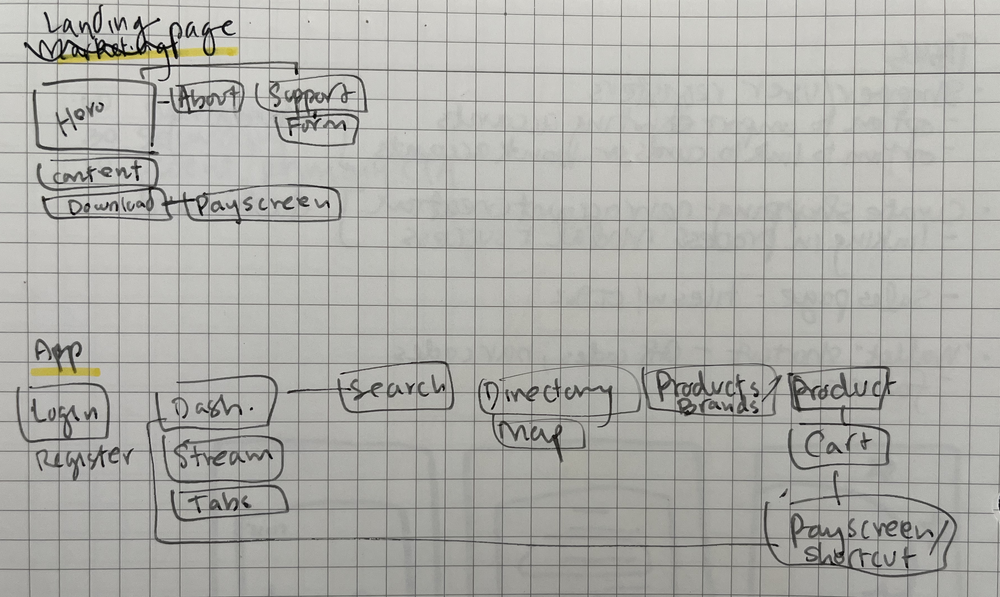 Landing page
Hero
About
Support
Form
Content
Download
Payscreen
App
Login
Register
Dash.
Stream
Tabs
Search
Directory
Map
Products
Brands
Product
Cart
Payscreen/
shortcut